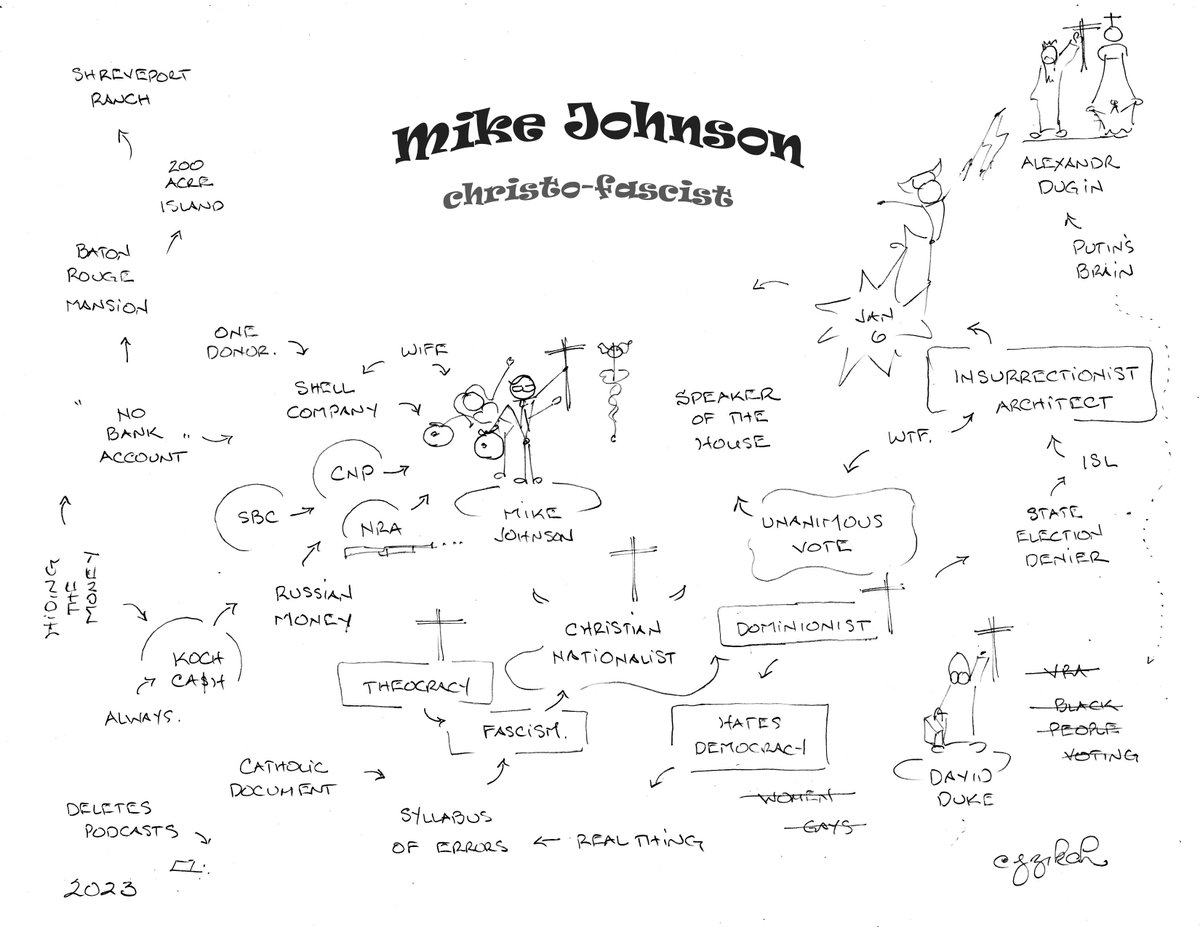 Mike Johnson
christo-fascist
SHREVEPORT
RANCH
200
ACRE
ISLAND
BATON
ROUGE
MANSION
ONE
DONOR.
WIFE
SHELL
COMPANY
" NO
BANK
ACCOUNT "
CNP
SBC
NRA
MIKE
JOHNSON
HIDING
THE
MONEY
RUSSIAN
MONEY
KOCH
CA$H
ALWAYS.
THEOCRACY
FASCISM.
CHRISTIAN
NATIONALIST
CATHOLIC
DOCUMENT
SYLLABUS
OF ERRORS
REAL THING
DELETES
PODCASTS
2023
SPEAKER
OF THE
HOUSE
UNANIMOUS
VOTE
WTF.
DOMINIONIST
HATES
DEMOCRACY
WOMEN
GAYS
JAN
6
ALEXANDR
DUGIN
PUTIN'S
BRAIN
INSURRECTIONIST
ARCHITECT
ISL
STATE
ELECTION
DENIER
VRA
BLACK
PEOPLE
VOTING
DAVID
DUKE